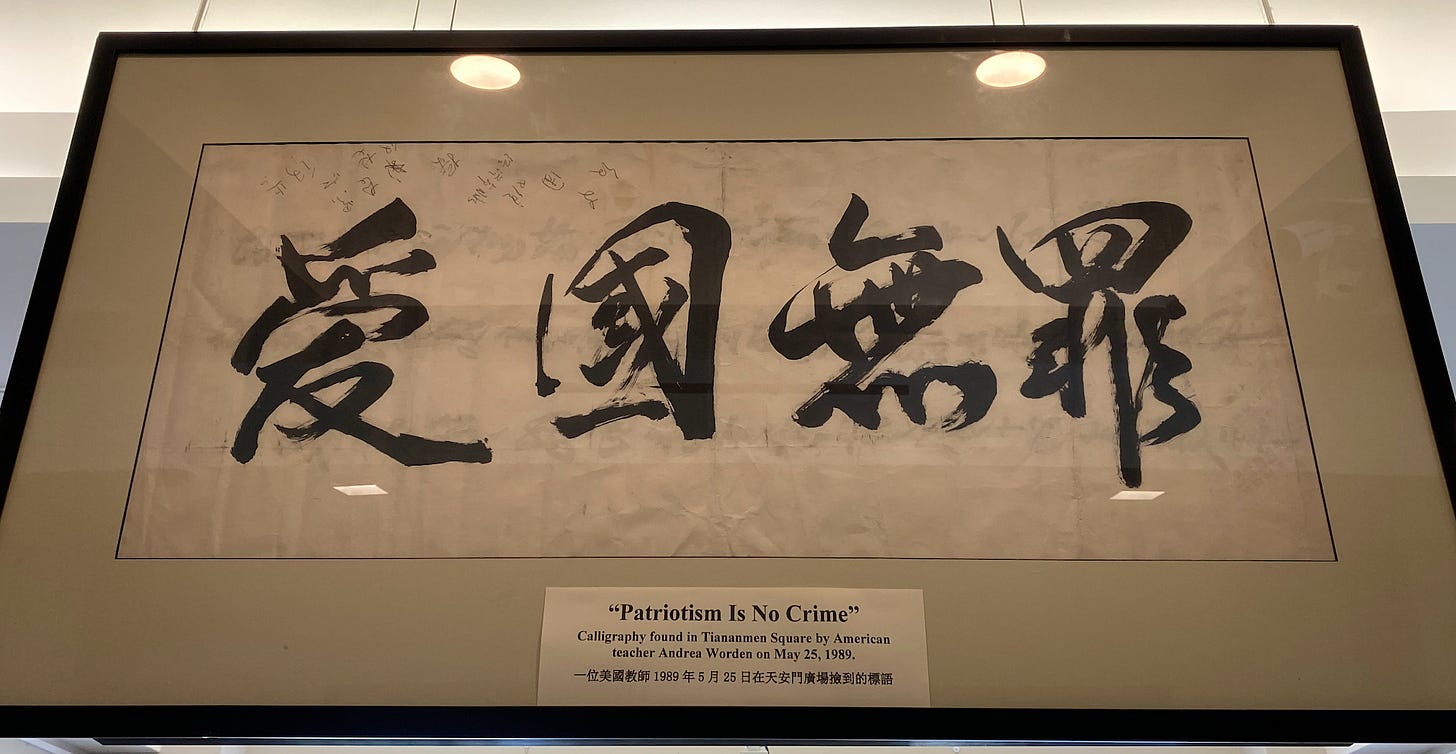 爱國無罪
“Patriotism Is No Crime”
Calligraphy found in Tiananmen Square by American
teacher Andrea Worden on May 25, 1989.
一位美國教師 1989 年 5 月 25 日在天安門廣場撿到的標語